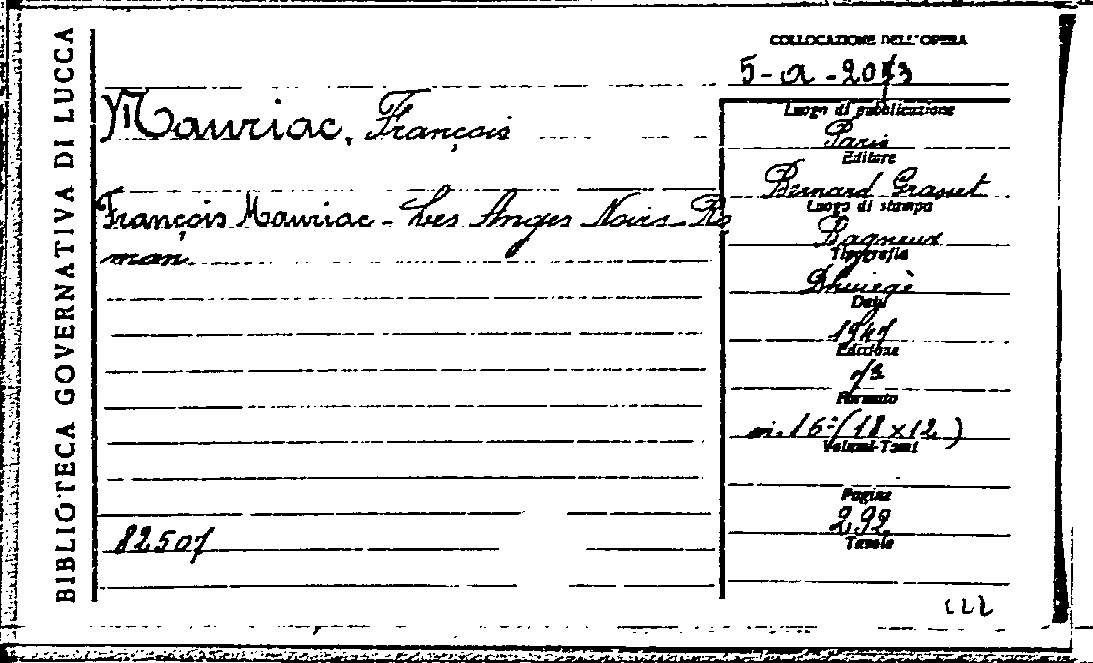 BIBLIOTECA GOVERNATIVA DI LUCCA
COLLOCAZIONE DELL'OPERA
5-a-2073
Mauriac, François
François Mauriac - Les Anges Noirs - Ro
man
82507
Luogo di pubblicazione
Paris
Editore
Bernard Grasset
Luogo di stampa
Bagneux
Tipografia
Data
1947
Edizione
73
Formato
in.16°(18x12)
Volumi-Tomi
Pagine
292
Tavole